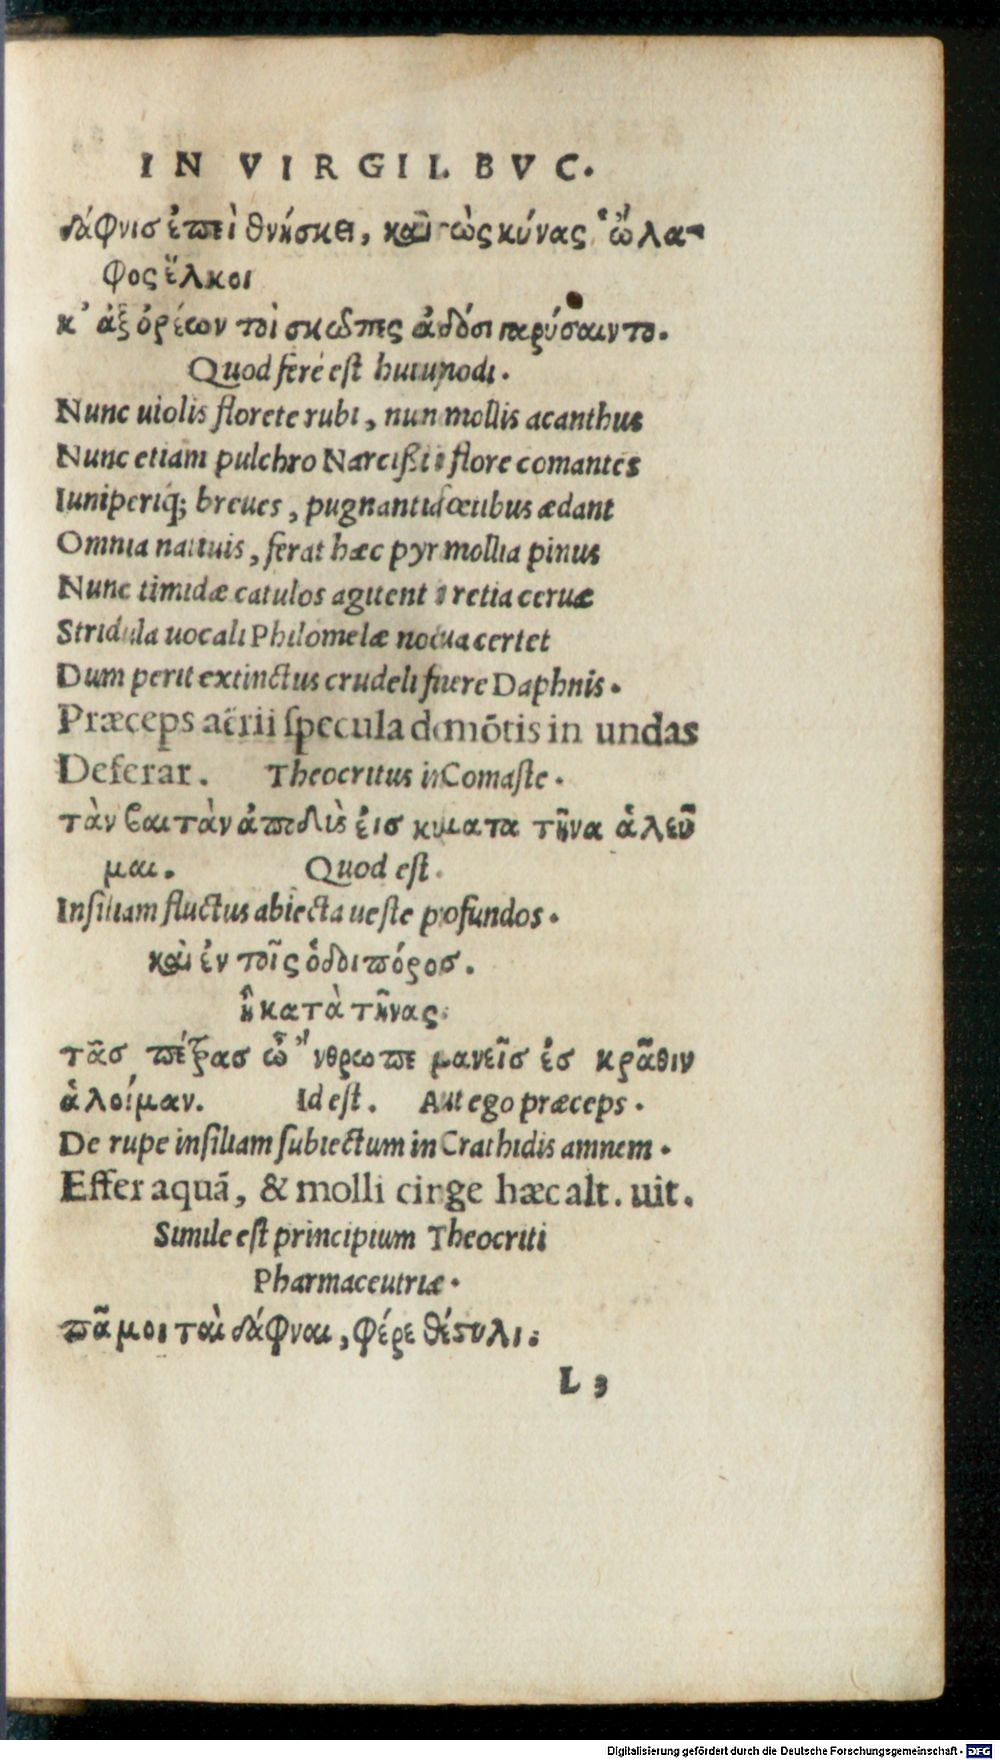 IN VIRGIL. BVC.
δάφνισ ἐπεὶ θνήσκει, καὶ τὼς κύνας ὥλα-
φος ἕλκοι
κ' ἀξ ὀρέων τοὶ σκῶπες ἀηδόσι γαρύσαιντο.
Quod ferè est huiuſmodi.
Nunc uiolis florete rubi, nun mollis acanthus
Nunc etiam pulchro Narciſsi flore comantes
Iuniperiq; breues, pugnantia fœtibus ædant
Omnia naturis, ferat hæc pyr mollia pinus
Nunc timidæ catulos agitent retia ceruæ
Stridula uocali Philomelæ noctua certet
Dum perit extinctus crudeli funere Daphnis.
Præceps aërii ſpecula de mōtis in undas
Deferar. Theocritus in Comaſte.
τὰν βαιτὰν ἀποδὺς εἰσ κυματα τῆνα ἁλεῦ
μαι. Quod eſt.
Inſiliam fluctus abiecta ueſte profundos.
καὶ ἐν τοῖς ὁδοιπόροσ.
ἢ κατὰ τήνας.
τᾶσ πέτρασ ὦ 'νθρωπε μανεῖσ ἐσ κρᾶθιν
ἁλοίμαν. Id eſt. Aut ego præceps.
De rupe inſiliam ſubiectum in Crathidis amnem.
Effer aquā, & molli cinge hæc alt. uit.
Simile eſt principium Theocriti
Pharmaceutriæ.
πᾶ μοι ταὶ δάφναι, φέρε θέστυλι.
L 3
Digitalisierung gefördert durch die Deutsche Forschungsgemeinschaft - DFG